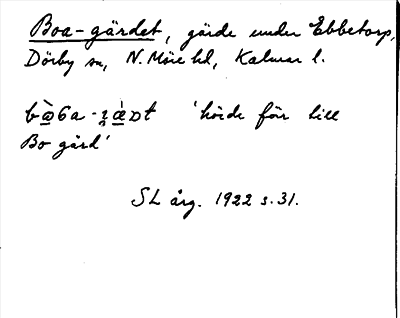 Boa-gärdet, gärde under Ebbetorp,
Dörby sn, N. Möre hd, Kalmar l.
'hörde för till
Bo gård'
SL årg. 1922 s. 31.